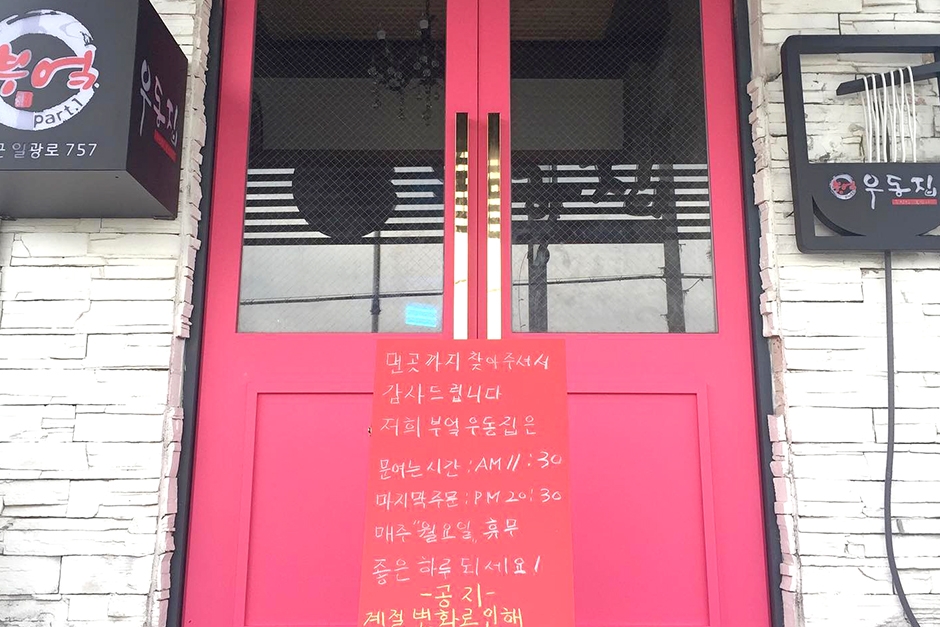 부엌
part.1
일광로 757
우동집
우동집
먼곳까지 찾아주셔서
감사드립니다
저희 부엌우동집은
문여는시간 : AM 11 : 30
마지막주문 : PM 20 : 30
매주 "월요일" 휴무
좋은 하루 되세요!
-공지-
계절 변화로 인해